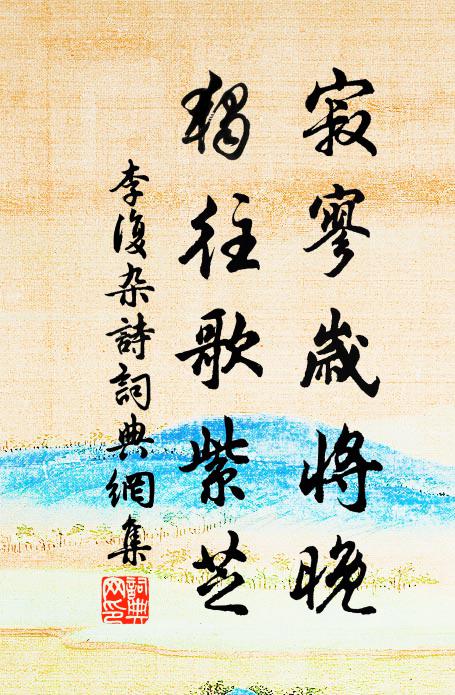 寂寥歲將晚
獨往歌紫芝
李復杂詩詞典網集
詞典